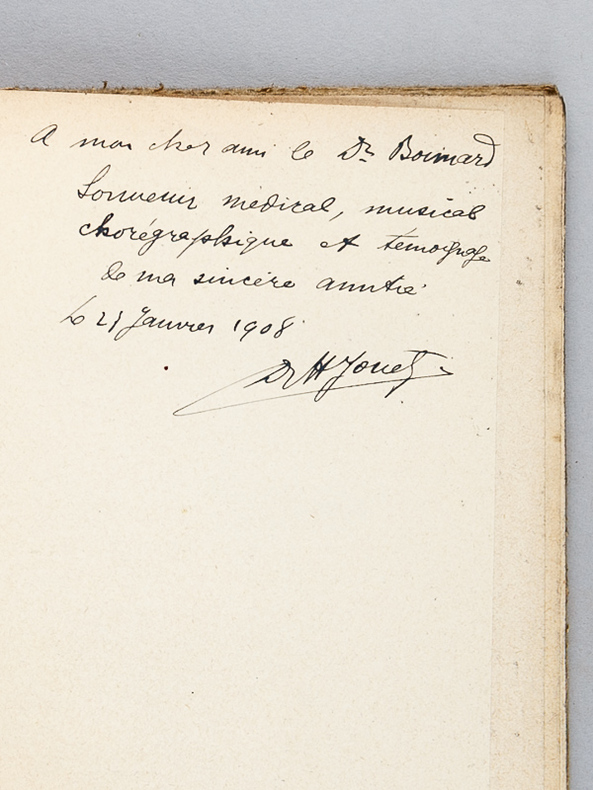 A mon cher ami le Dr Boimard
Souvenir médical, musical
chorégraphique et témoignage
de ma sincère amitié
le 21 Janvier 1908
Dr H Jouet